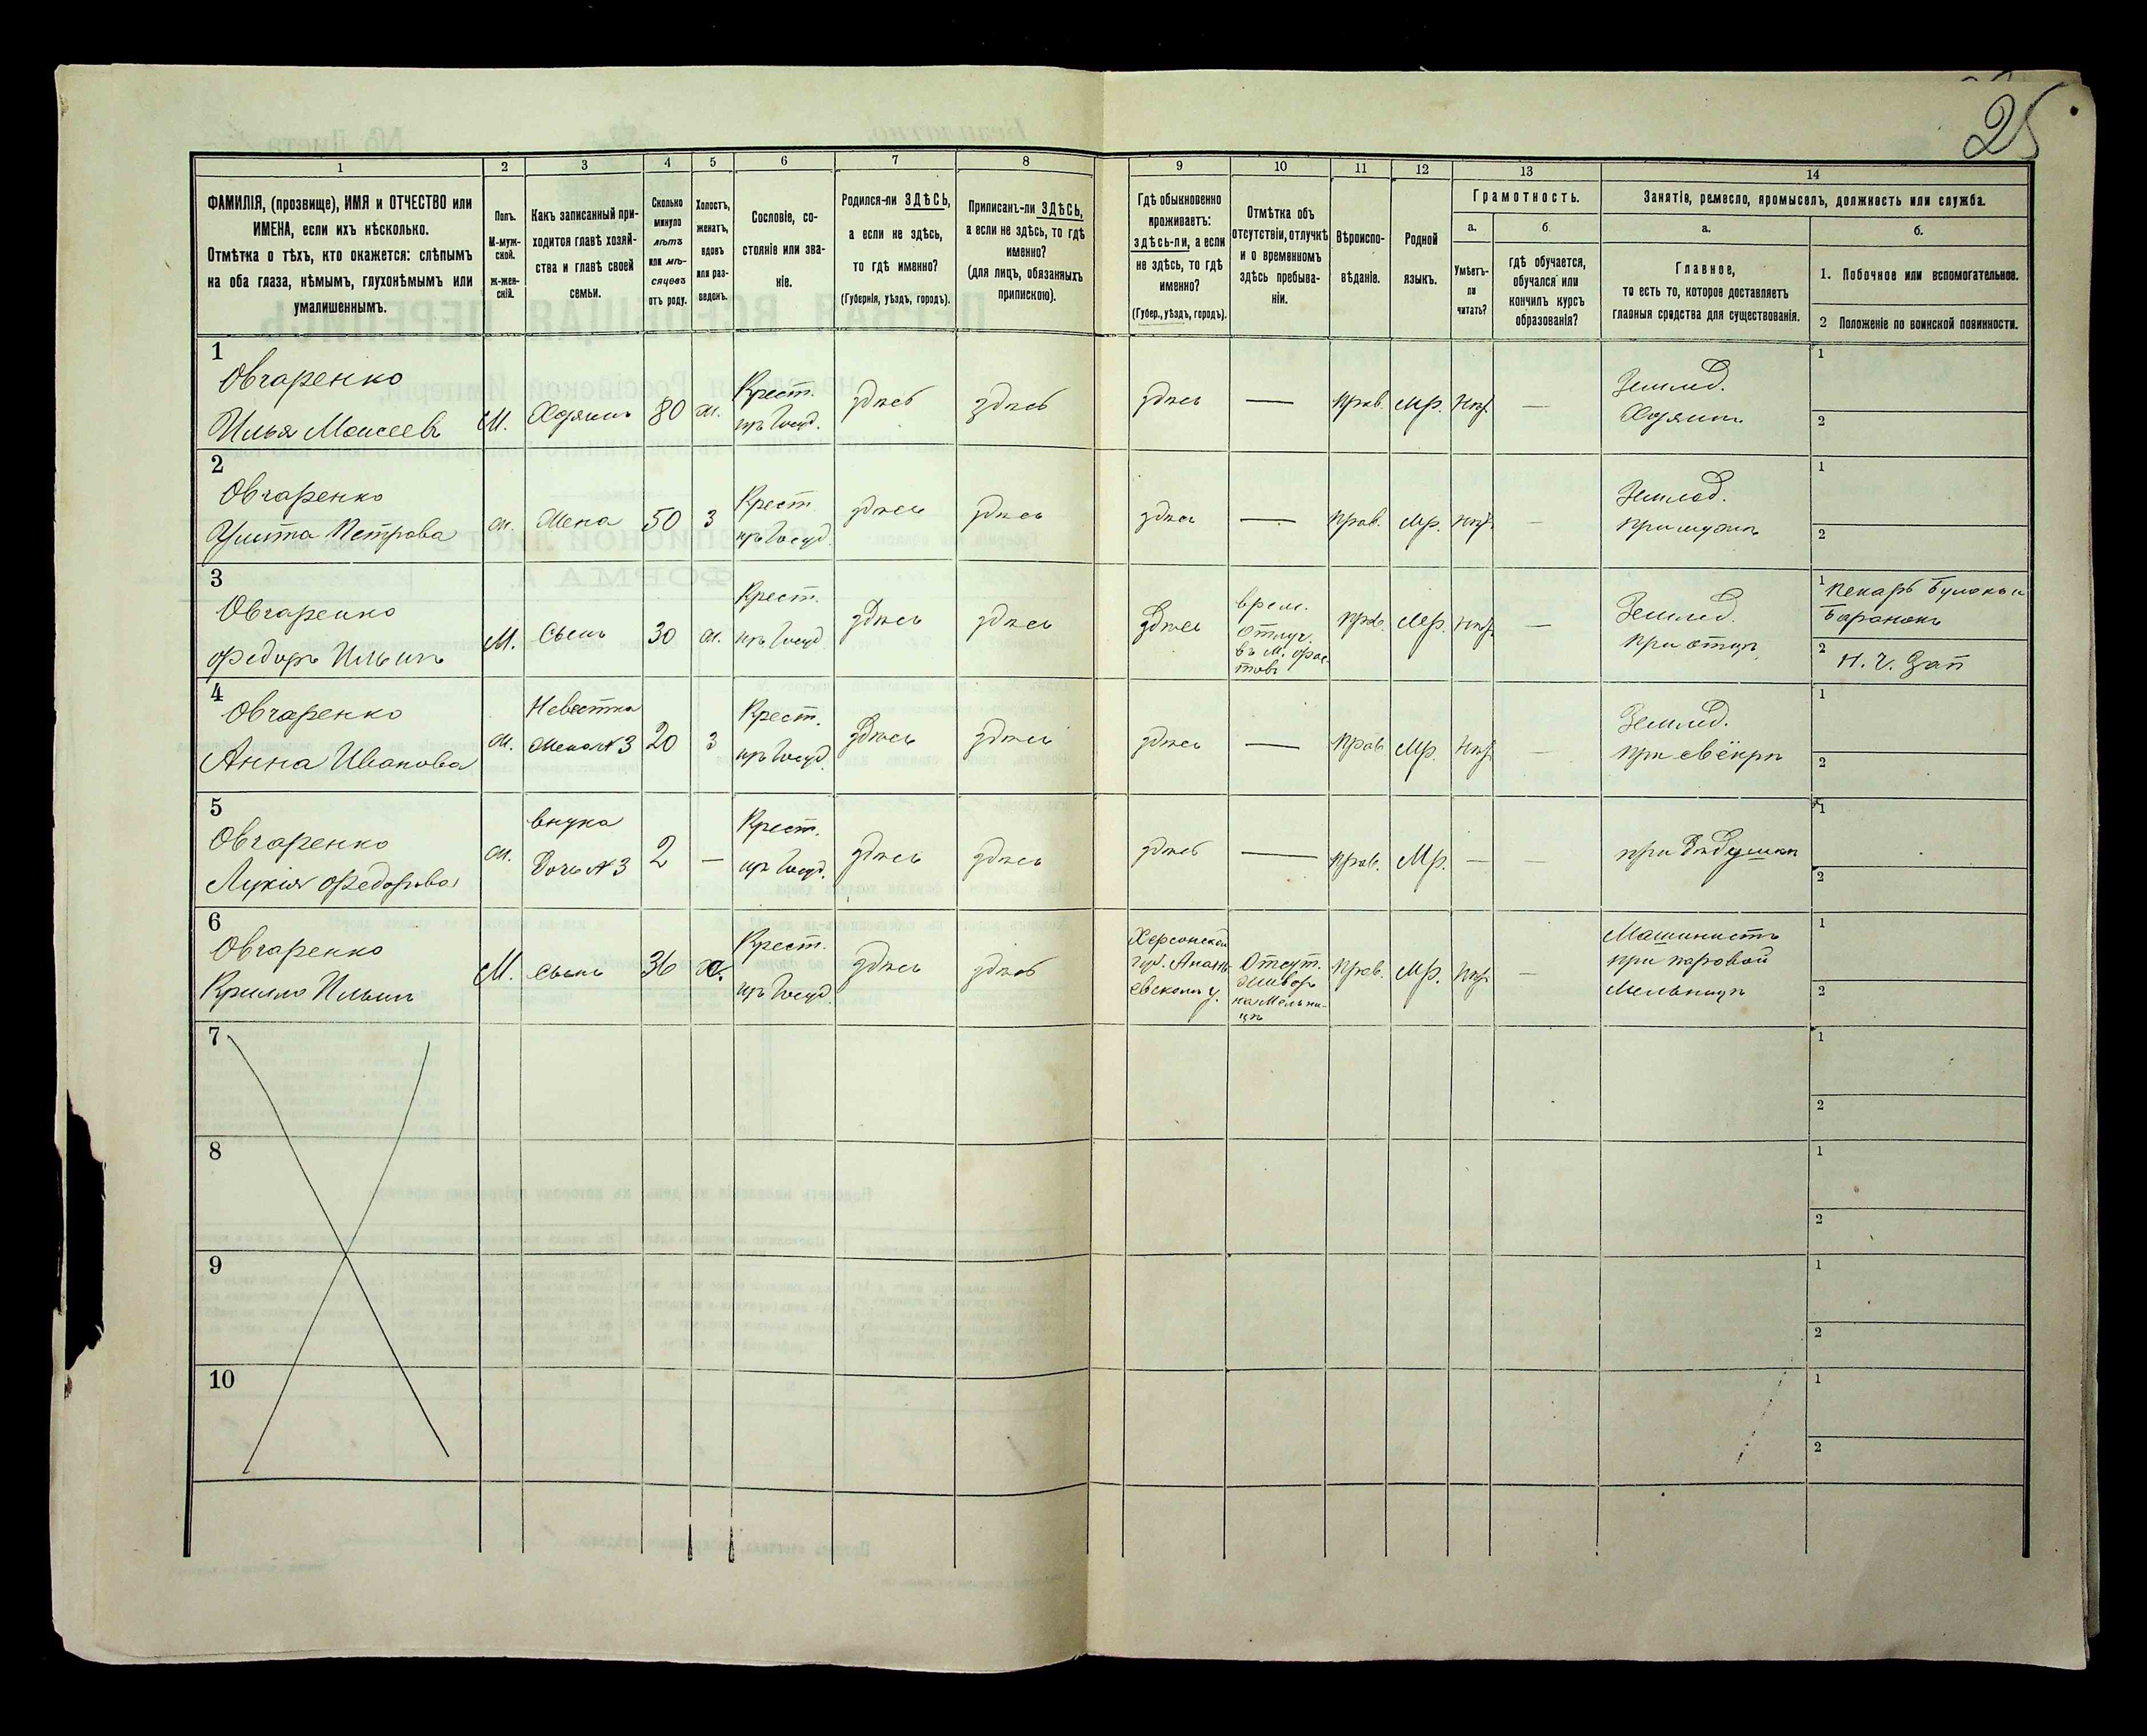 25
1
2
3
4
5
6
7
8
9
10
11
12
13
14
ФАМИЛІЯ, (прозвище), ИМЯ и ОТЧЕСТВО или
ИМЕНА, если ихъ нѣсколько.
Отмѣтка о тѣхъ, кто окажется: слѣпымъ
на оба глаза, нѣмымъ, глухонѣмымъ или
умалишеннымъ.
Полъ.
М-муж-
ской.
Ж-жен-
скій.
Какъ записанный при-
ходится главѣ хозяй-
ства и главѣ своей
семьи.
Сколько
минуло
лѣтъ
или мѣ-
сяцевъ
отъ роду.
Холостъ,
женатъ,
вдовъ
или раз-
веденъ.
Сословіе, со-
стояніе или зва-
ніе.
Родился-ли ЗДѢСЬ,
а если не здѣсь,
то гдѣ именно?
(Губернія, уѣздъ, городъ).
Приписанъ-ли ЗДѢСЬ,
а если не здѣсь, то гдѣ
именно?
(для лицъ, обязанныхъ
припискою).
Гдѣ обыкновенно
проживаетъ:
здѣсь-ли, а если
не здѣсь, то гдѣ
именно?
(Губер., уѣздъ, городъ).
Отмѣтка объ
отсутствіи, отлучкѣ
и о временномъ
здѣсь пребыва-
ніи.
Вѣроиспо-
вѣданіе.
Родной
языкъ.
Грамотность.
а.
б.
Умѣетъ-
ли
читать?
гдѣ обучается,
обучался или
кончилъ курсъ
образованія?
Занятіе, ремесло, промыселъ, должность или служба.
а.
б.
Главное,
то есть то, которое доставляетъ
главныя средства для существованія.
1. Побочное или вспомогательное.
2 Положеніе по воинской повинности.
1
Овчаренко
Илья Моисеевъ
М. Хозяинъ 80 ж. Крест.
изъ Госуд. здѣсь здѣсь здѣсь — Прав. Мр. Нѣт —
Землед.
Хозяинъ
1
2
2
Овчаренко
Улита Петрова
ж. Жена 50 З Крест.
изъ Госуд. здѣсь здѣсь здѣсь — Прав. Мр. Нѣт —
Землед.
при мужѣ
1
2
3
Овчаренко
Федоръ Ильинъ
М. Сынъ 30 ж. Крест.
изъ Госуд. здѣсь здѣсь здѣсь
врем.
отлуч.
въ М. Фас-
товъ
Прав. Мр. Нѣт —
Землед.
при отцѣ
1 Пекарь Булокъ и
Баранокъ
2 Н. Ч. Зап
4
Овчаренко
Анна Иванова
ж. Невестка
Жена №3 20 З Крест.
изъ Госуд. здѣсь здѣсь здѣсь — Прав Мр. Нѣт —
Землед.
при свёкрѣ
1
2
5
Овчаренко
Лукія Федорова
ж. внука
Дочь №3 2 — Крест.
изъ Госуд. здѣсь здѣсь здѣсь — Прав. Мр. — —
при Дѣдушкѣ
1
2
6
Овчаренко
Крилло Ильинъ
М. Сынъ 36 Крест.
изъ Госуд. здѣсь здѣсь
Херсонской
Губ. Анань-
евскомъ у.
Отсут.
на Мельни-
цѣ
Прав. Мр. Нѣт —
Машинистъ
при паровой
Мельницѣ
1
2
7
1
2
8
1
2
9
1
2
10
1
2